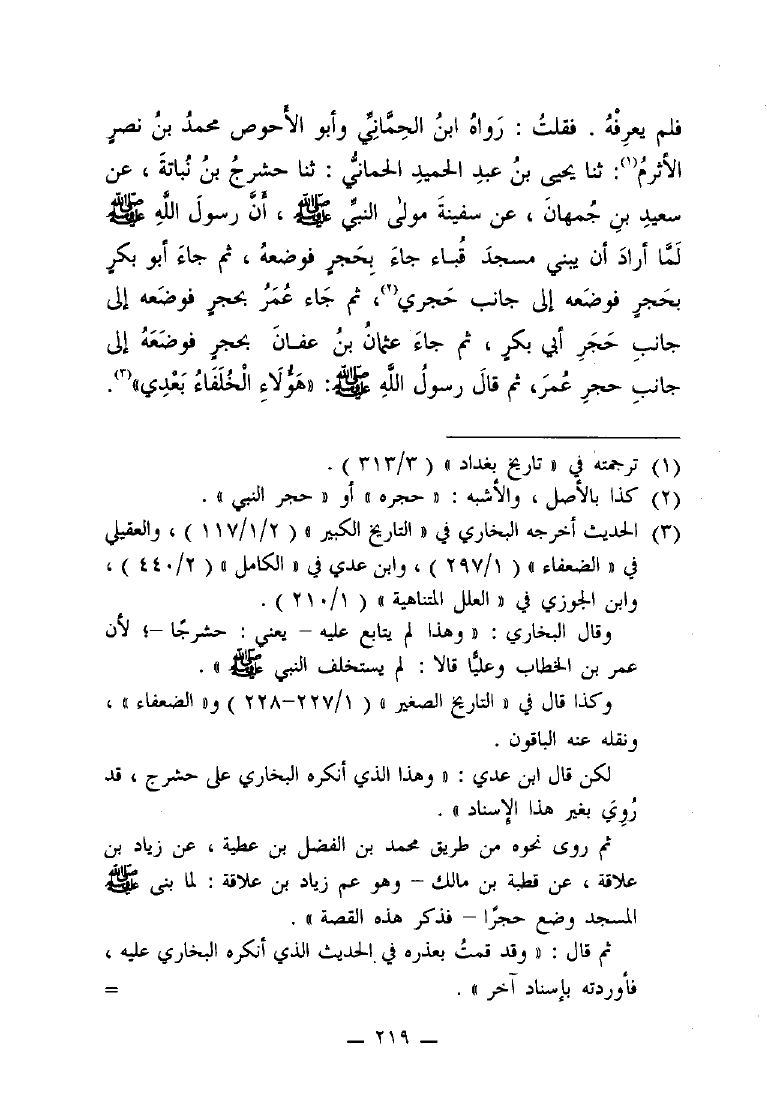 فلم يعرِفْهُ . فقلتُ : رَواهُ ابنُ الحِمَّانِيِّ وأبو الأَحوص محمدُ بنُ نصرٍ
الأثرمُ(١): ثنا يحيى بنُ عبدِ الحميدِ الحمانيُّ : ثنا حشرجُ بنُ نُباتةَ ، عن
سعيدِ بنِ جُمهانَ ، عن سفينةَ مولىٰ النبيِّ ﷺ ، أَنَّ رسولَ اللَّهِ ﷺ
لَمَّا أرادَ أن يبني مسجدَ قُباء جاءَ بِحَجرٍ فوضعهُ ، ثم جاءَ أبو بكرٍ
بحَجرٍ فوضَعه إلى جانب حَجري(٢)، ثم جَاء عُمَرُ بحجرٍ فوضَعه إلى
جانبِ حَجَرِ أبي بكرٍ ، ثم جاءَ عثمانُ بنُ عفـانَ بحجرٍ فوضَعَهُ إلى
جانبِ حجرِ عُمرَ، ثم قالَ رسولُ اللَّهِ ﷺ: «هَؤُلَاءِ الْخُلَفَاءُ بَعْدِي»(٣).
(١) ترجمته في « تاريخ بغداد » ( ٣١٣/٣ ) .
(٢) كذا بالأصل ، والأشبه : « حجره » أو « حجر النبي » .
(٣) الحديث أخرجه البخاري في « التاريخ الكبير » ( ١١٧/١/٢ ) ، والعقيلي
في « الضعفاء » ( ٢٩٧/١ ) ، وابن عدي في « الكامل » ( ٤٤٠/٢ ) ،
وابن الجوزي في « العلل المتناهية » ( ٢١٠/١ ) .
وقال البخاري : « وهذا لم يتابع عليه – يعني : حشرجًا –؛ لأن
عمر بن الخطاب وعليًّا قالا : لم يستخلف النبي ﷺ » .
وكذا قال في « التاريخ الصغير » ( ٢٢٧/١–٢٢٨ ) و« الضعفاء » ،
ونقله عنه الباقون .
لكن قال ابن عدي : « وهذا الذي أنكره البخاري على حشرج ، قد
رُوِيَ بغير هذا الإسناد » .
ثم روى نحوه من طريق محمد بن الفضل بن عطية ، عن زياد بن
علاقة ، عن قطبة بن مالك – وهو عم زياد بن علاقة : لما بنى ﷺ
المسجد وضع حجرًا – فذكر هذه القصة » .
ثم قال : « وقد قمتُ بعذره في الحديث الذي أنكره البخاري عليه ،
فأوردته بإسناد آخر » . =
— ٢١٩ —